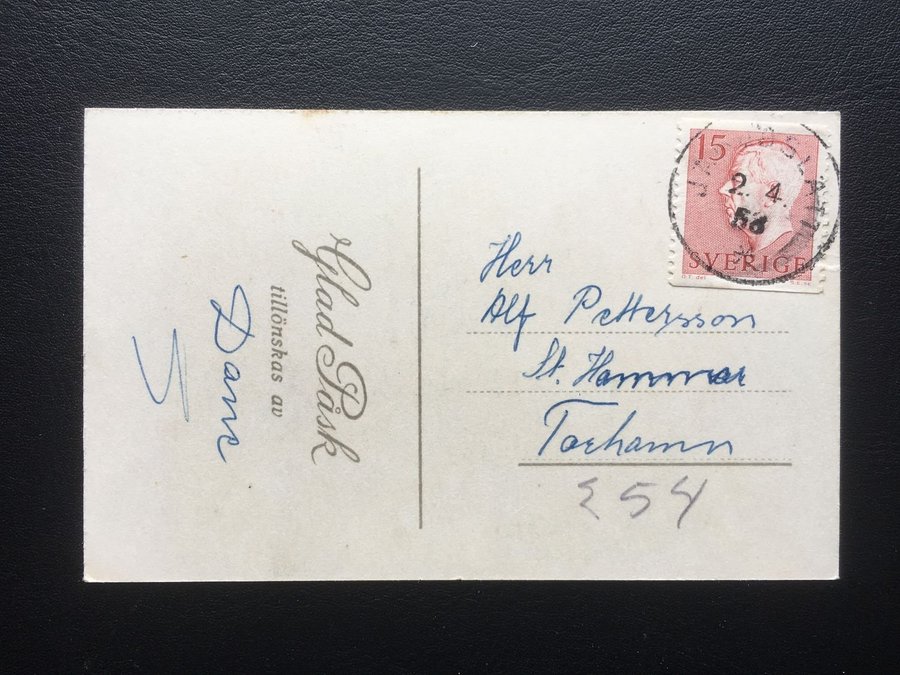 Glad Påsk
tillönskas av
15
2. 4.
56
SVERIGE
Herr
Alf Pettersson
St. Hammar
Torhamn
54